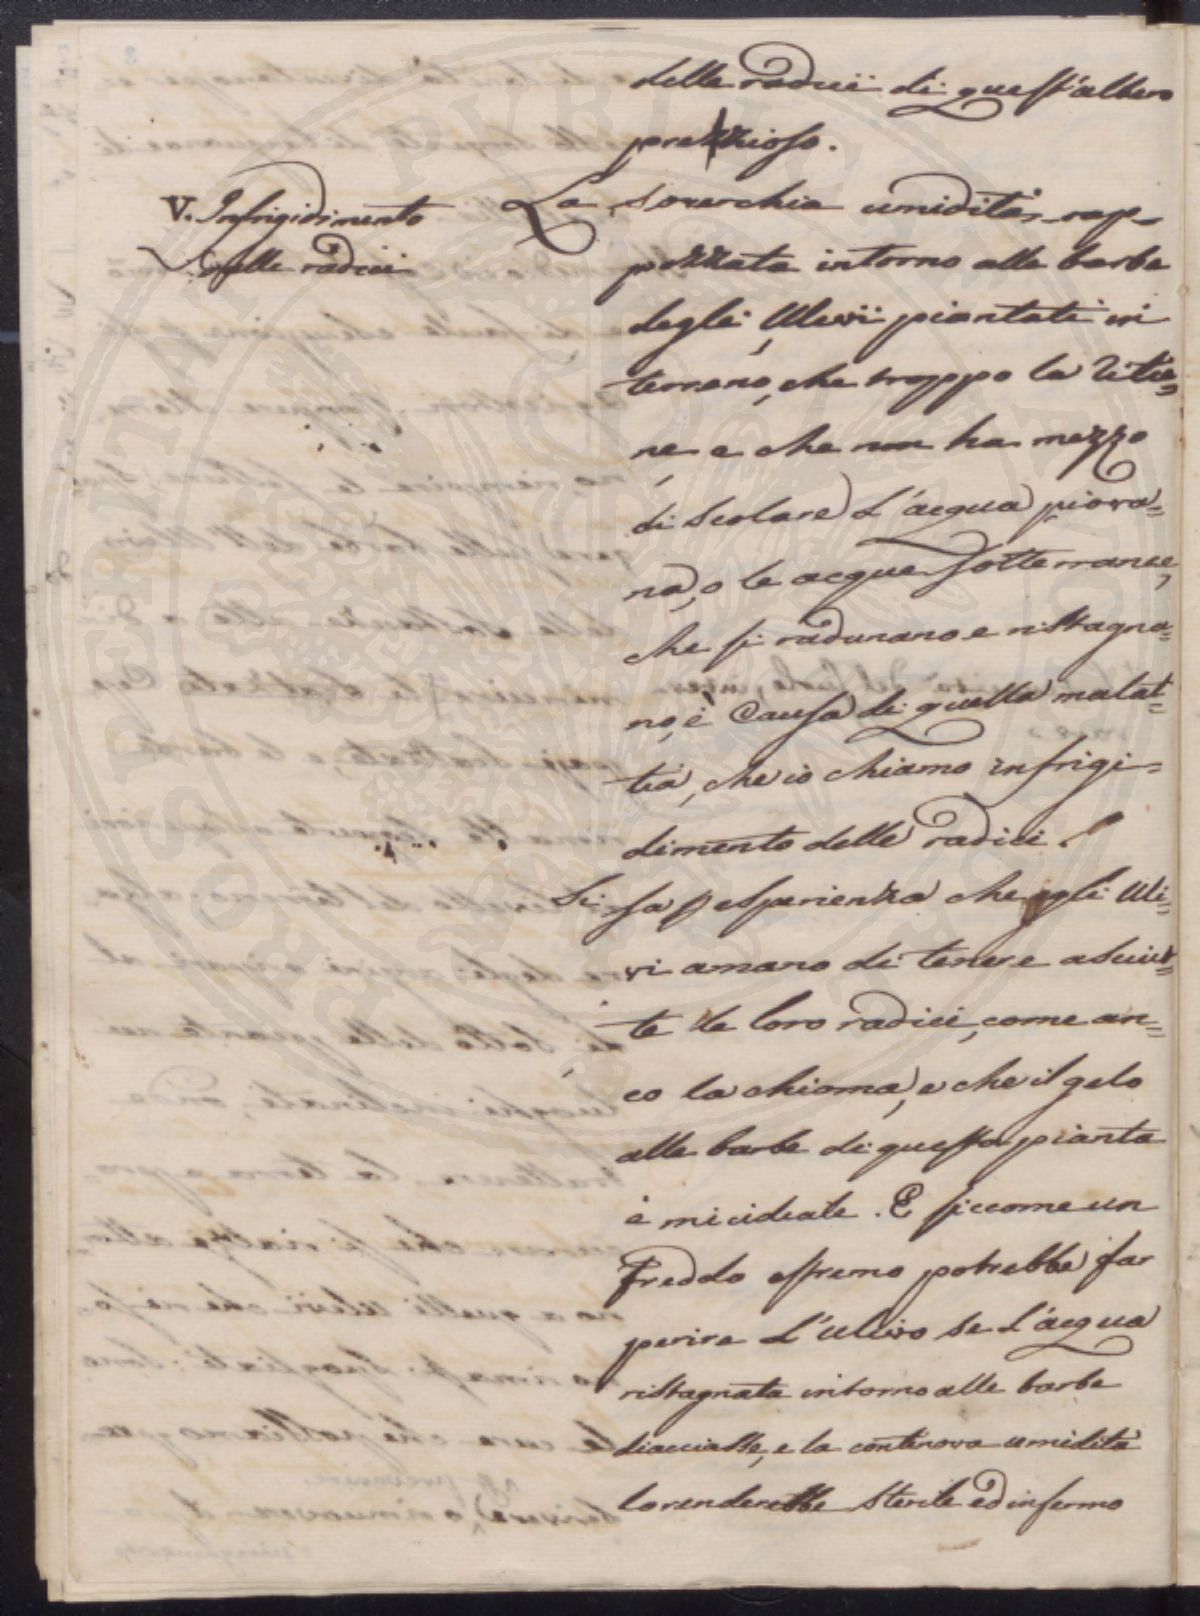 delle radici di quest'albero
prezzioso.
V. Infrigidimento
delle radici
La soverchia umidità, rap-
pozzata intorno alle barbe
degli Ulivi piantati in
terreno, che troppo la ritie=
ne, e che non ha mezzo
di scolare l'acqua piova=
na, o le acque sotterranee,
che si radunano e ristagna=
no, è causa di quella malat=
tia, che io chiamo infrigi=
dimento delle radici.
Si sa p esperienza che gli Uli=
vi amano di tenere asciut=
te le loro radici, come an=
co la chioma, e che il gelo
alle barbe di questa pianta
è micidiale. E siccome un
freddo estremo potrebbe far
perire l'ulivo se l'acqua
ristagnata intorno alle barbe
diacciasse, e la continova umidità
lo renderebbe sterile ed infermo